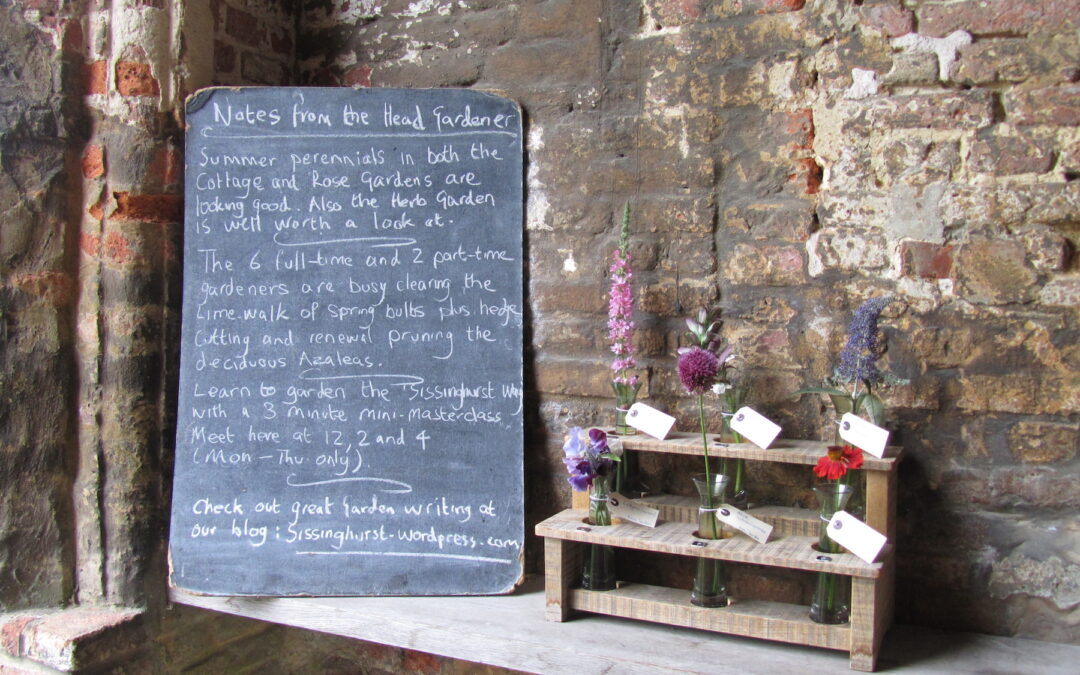 Notes from the Head Gardener
Summer perennials in both the
Cottage and Rose Gardens are
looking good. Also the Herb Garden
is well worth a look at.
The 6 full-time and 2 part-time
gardeners are busy clearing the
Lime walk of spring bulbs plus hedge
cutting and renewal pruning the
deciduous Azaleas.
Learn to garden the 'Sissinghurst Way
with a 3 minute mini-masterclass
Meet here at 12, 2 and 4
(Mon - Thu only).
Check out great Garden writing at
our blog : Sissinghurst-wordpress.com